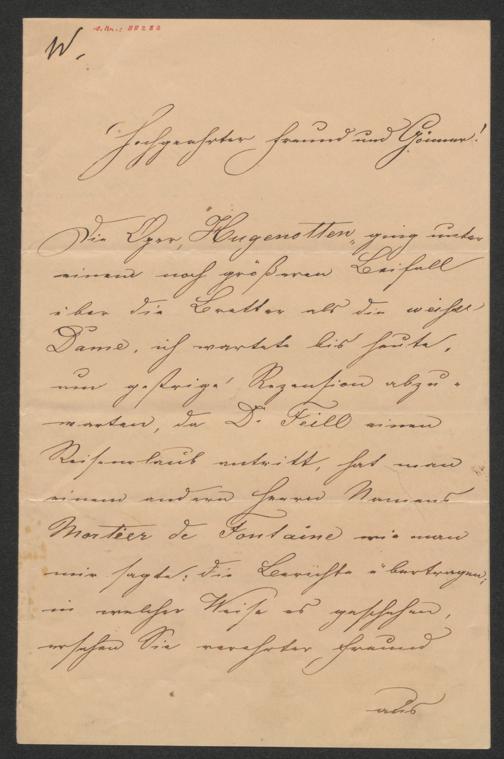 W.
Hochgeehrter Freund und Gönner!
Die Oper „Hugenotten" ging unter
einem noch größeren Beifall
über die Bretter als die weiße
Dame, ich wartete bis heute,
um gestrige Rezension abzu-
warten, da D. Feill einen
Reiseurlaub antritt, hat man
einem andern Herrn Namens
Mortier de Fontaine wie man
mir sagte; die Berichte übertragen;
in welcher Weise es geschehen,
ersehen Sie verehrter Freund
aus